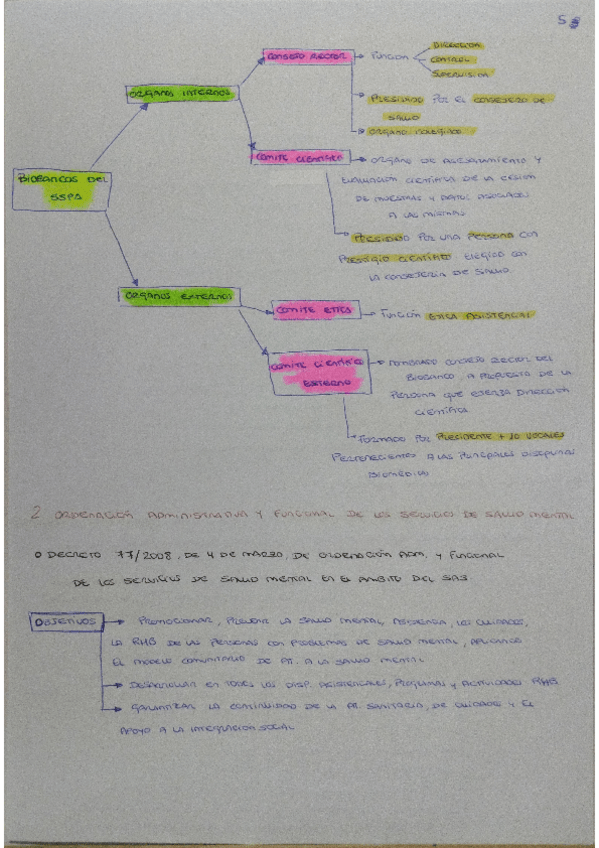 5
BIOBANCOS DEL
SSPA
ORGANOS INTERNOS
CONSEJO RECTOR
FUNCION
DIRECCION
CONTROL
SUPERVISION
PRESIDIDO POR EL CONSEJERO DE
SALUD
ORGANO COLEGIADO
COMITE CIENTIFICO
ORGANO DE ASESORAMIENTO Y
EVALUACION CIENTIFICA DE LA CESION
DE MUESTRAS Y DATOS ASOCIADOS
A LAS MISMAS
PRESIDIDO POR UNA PERSONA CON
PRESTIGIO CIENTIFICO ELEGIDO CON
LA CONSEJERIA DE SALUD.
ORGANOS EXTERNOS
COMITE ETICO
FUNCIÓN ETICA ASISTENCIAL
COMITE CIENTIFICO
EXTERNO
NOMBRADO CONSEJO RECTOR DEL
BIOBANCO, A PROPUESTA DE LA
PERSONA QUE EJERZA DIRECCION
CIENTIFICA
FORMADO POR PRESIDENTE + 10 VOCALES
PERTENECIENTES A LAS PRINCIPALES DISCIPLINAS
BIOMEDICAS
2 ORDENACIÓN ADMINISTRATIVA Y FUNCIONAL DE LOS SERVICIOS DE SALUD MENTAL
O DECRETO 77/2008, DE 4 DE MARZO, DE ORDENACIÓN ADM. Y FUNCIONAL
DE LOS SERVICIOS DE SALUD MENTAL EN EL AMBITO DEL SAS
OBJETIVOS
PROMOCIONAR, PREVENIR LA SALUD MENTAL, ASISTENCIA, LOS CUIDADOS,
LA RHB DE LAS PERSONAS CON PROBLEMAS DE SALUD MENTAL, APLICANDO
EL MODELO COMUNITARIO DE AT. A LA SALUD MENTAL
DESARROLLAR EN TODOS LOS DISP. ASISTENCIALES, PROGRAMAS Y ACTIVIDADES RHB
GARANTIZAR LA CONTINUIDAD DE LA AT. SANITARIA, DE CUIDADOS Y EL
APOYO A LA INTEGRACIÓN SOCIAL